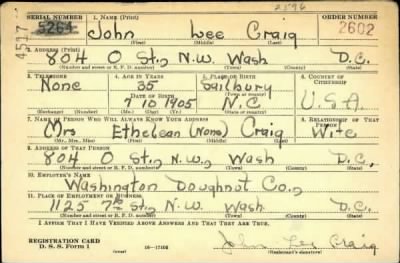 21596
SERIAL NUMBER 1. NAME (Print) ORDER NUMBER
4517 5264 John Lee Craig 2602
(First) (Middle) (Last)
2. ADDRESS (Print)
804 O St., N.W. Wash D.C.
(Number and street or R. F. D. number) (Town) (County) (State)
3. TELEPHONE 4. AGE IN YEARS 5. PLACE OF BIRTH 6. COUNTRY OF CITIZENSHIP
None 35 Sailbury
DATE OF BIRTH (Town or county)
7 10 1905 N.C. U.S.A
(Exchange) (Number) (Mo.) (Day) (Yr.) (State or country)
7. NAME OF PERSON WHO WILL ALWAYS KNOW YOUR ADDRESS 8. RELATIONSHIP OF THAT PERSON
Mrs Ethelean (None) Craig Wife
(Mr., Mrs., Miss) (First) (Middle) (Last)
9. ADDRESS OF THAT PERSON
804 O St., N.W., Wash D.C.
(Number and street or R. F. D. number) (Town) (County) (State)
10. EMPLOYER'S NAME
Washington Doughnut Co.,
11. PLACE OF EMPLOYMENT OR BUSINESS
1125 7th St., N.W. Wash D.C.
(Number and street or R. F. D. number) (Town) (County) (State)
I AFFIRM THAT I HAVE VERIFIED ABOVE ANSWERS AND THAT THEY ARE TRUE.
REGISTRATION CARD
D. S. S. Form 1 (over) 16—17105 John Lee Craig
(Registrant's signature)